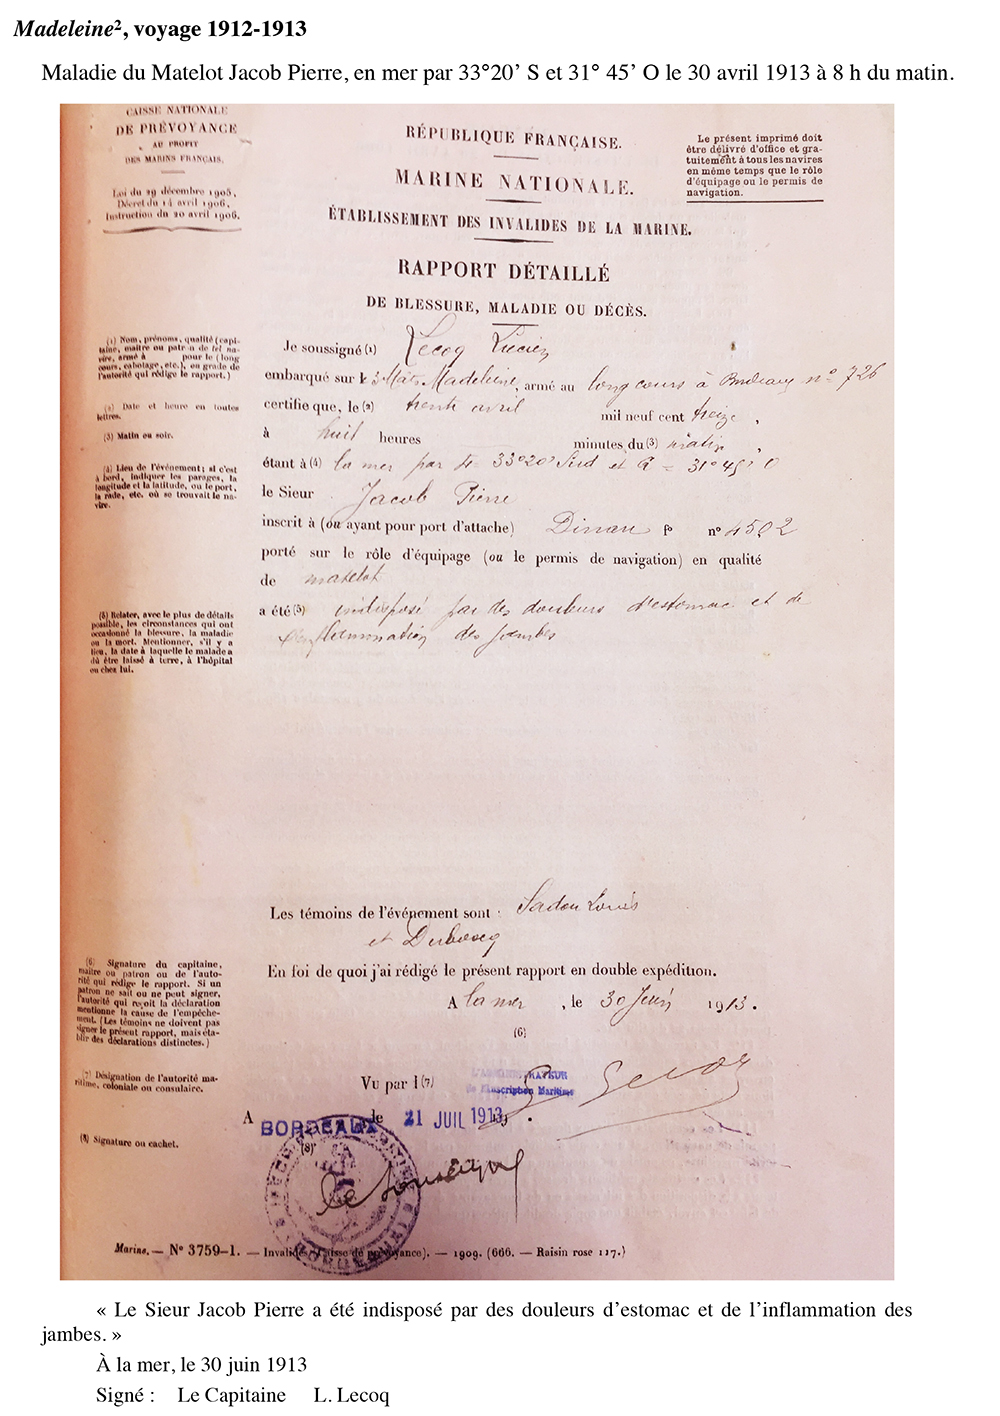 Madeleine², voyage 1912-1913
Maladie du Matelot Jacob Pierre, en mer par 33°20’ S et 31° 45’ O le 30 avril 1913 à 8 h du matin.
CAISSE NATIONALE
DE PRÉVOYANCE
AU PROFIT
DES MARINS FRANÇAIS.
Loi du 29 décembre 1905,
Décret du 14 avril 1906,
Instruction du 20 avril 1906.
RÉPUBLIQUE FRANÇAISE.
MARINE NATIONALE.
ÉTABLISSEMENT DES INVALIDES DE LA MARINE.
Le présent imprimé doit
être délivré d'office et gra-
tuitement à tous les navires
en même temps que le rôle
d'équipage ou le permis de
navigation.
RAPPORT DÉTAILLÉ
DE BLESSURE, MALADIE OU DÉCÈS.
(1) Nom, prénoms, qualité (capi-
taine, maître ou patron de tel na-
vire, armé à pour le (long
cours, cabotage, etc.), ou grade de
l'autorité qui rédige le rapport.)
(2) Date et heure en toutes
lettres.
(3) Matin ou soir.
(4) Lieu de l'événement; si c'est
à bord, indiquer les parages, la
longitude et la latitude, ou le port,
la rade, etc. où se trouvait le na-
vire.
(5) Relater, avec le plus de détails
possible, les circonstances qui ont
occasionné la blessure, la maladie
ou la mort. Mentionner, s'il y a
lieu, la date à laquelle le malade a
dû être laissé à terre, à l'hôpital
ou chez lui.
Je soussigné (1) Lecoq Lucien
embarqué sur le 3 Mâts Madeleine, armé au long cours à Bordeaux n° 726
certifie que, le (2) trente avril mil neuf cent treize,
à huit heures minutes du (3) matin,
étant à (4) la mer par 33°20' Sud et 31°45' O
le Sieur Jacob Pierre
inscrit à (ou ayant pour port d'attache) Dinan f° n° 4502
porté sur le rôle d'équipage (ou le permis de navigation) en qualité
de matelot
a été (5) indisposé par des douleurs d'estomac et de
l'inflammation des jambes
Les témoins de l'événement sont : Sadou Louis
et Duboscq
En foi de quoi j'ai rédigé le présent rapport en double expédition.
A la mer, le 30 Juin 1913.
(6)
(6) Signature du capitaine,
maître ou patron ou de l'auto-
rité qui rédige le rapport. Si un
patron ne sait ou ne peut signer,
l'autorité qui reçoit la déclaration
mentionne la cause de l'empêche-
ment. (Les témoins ne doivent pas
signer le présent rapport, mais éta-
blir des déclarations distinctes.)
(7) Désignation de l'autorité ma-
ritime, coloniale ou consulaire.
(8) Signature ou cachet.
Vu par l (7) L'ADMINISTRATEUR
de l'Inscription Maritime
Lecoq
A BORDEAUX le 21 JUIL 1913.
(8)
Marine. — N° 3759-1. — Invalides (Caisse de prévoyance). — 1909. (666. — Raisin rose 117.)
« Le Sieur Jacob Pierre a été indisposé par des douleurs d’estomac et de l’inflammation des
jambes. »
À la mer, le 30 juin 1913
Signé : Le Capitaine L. Lecoq